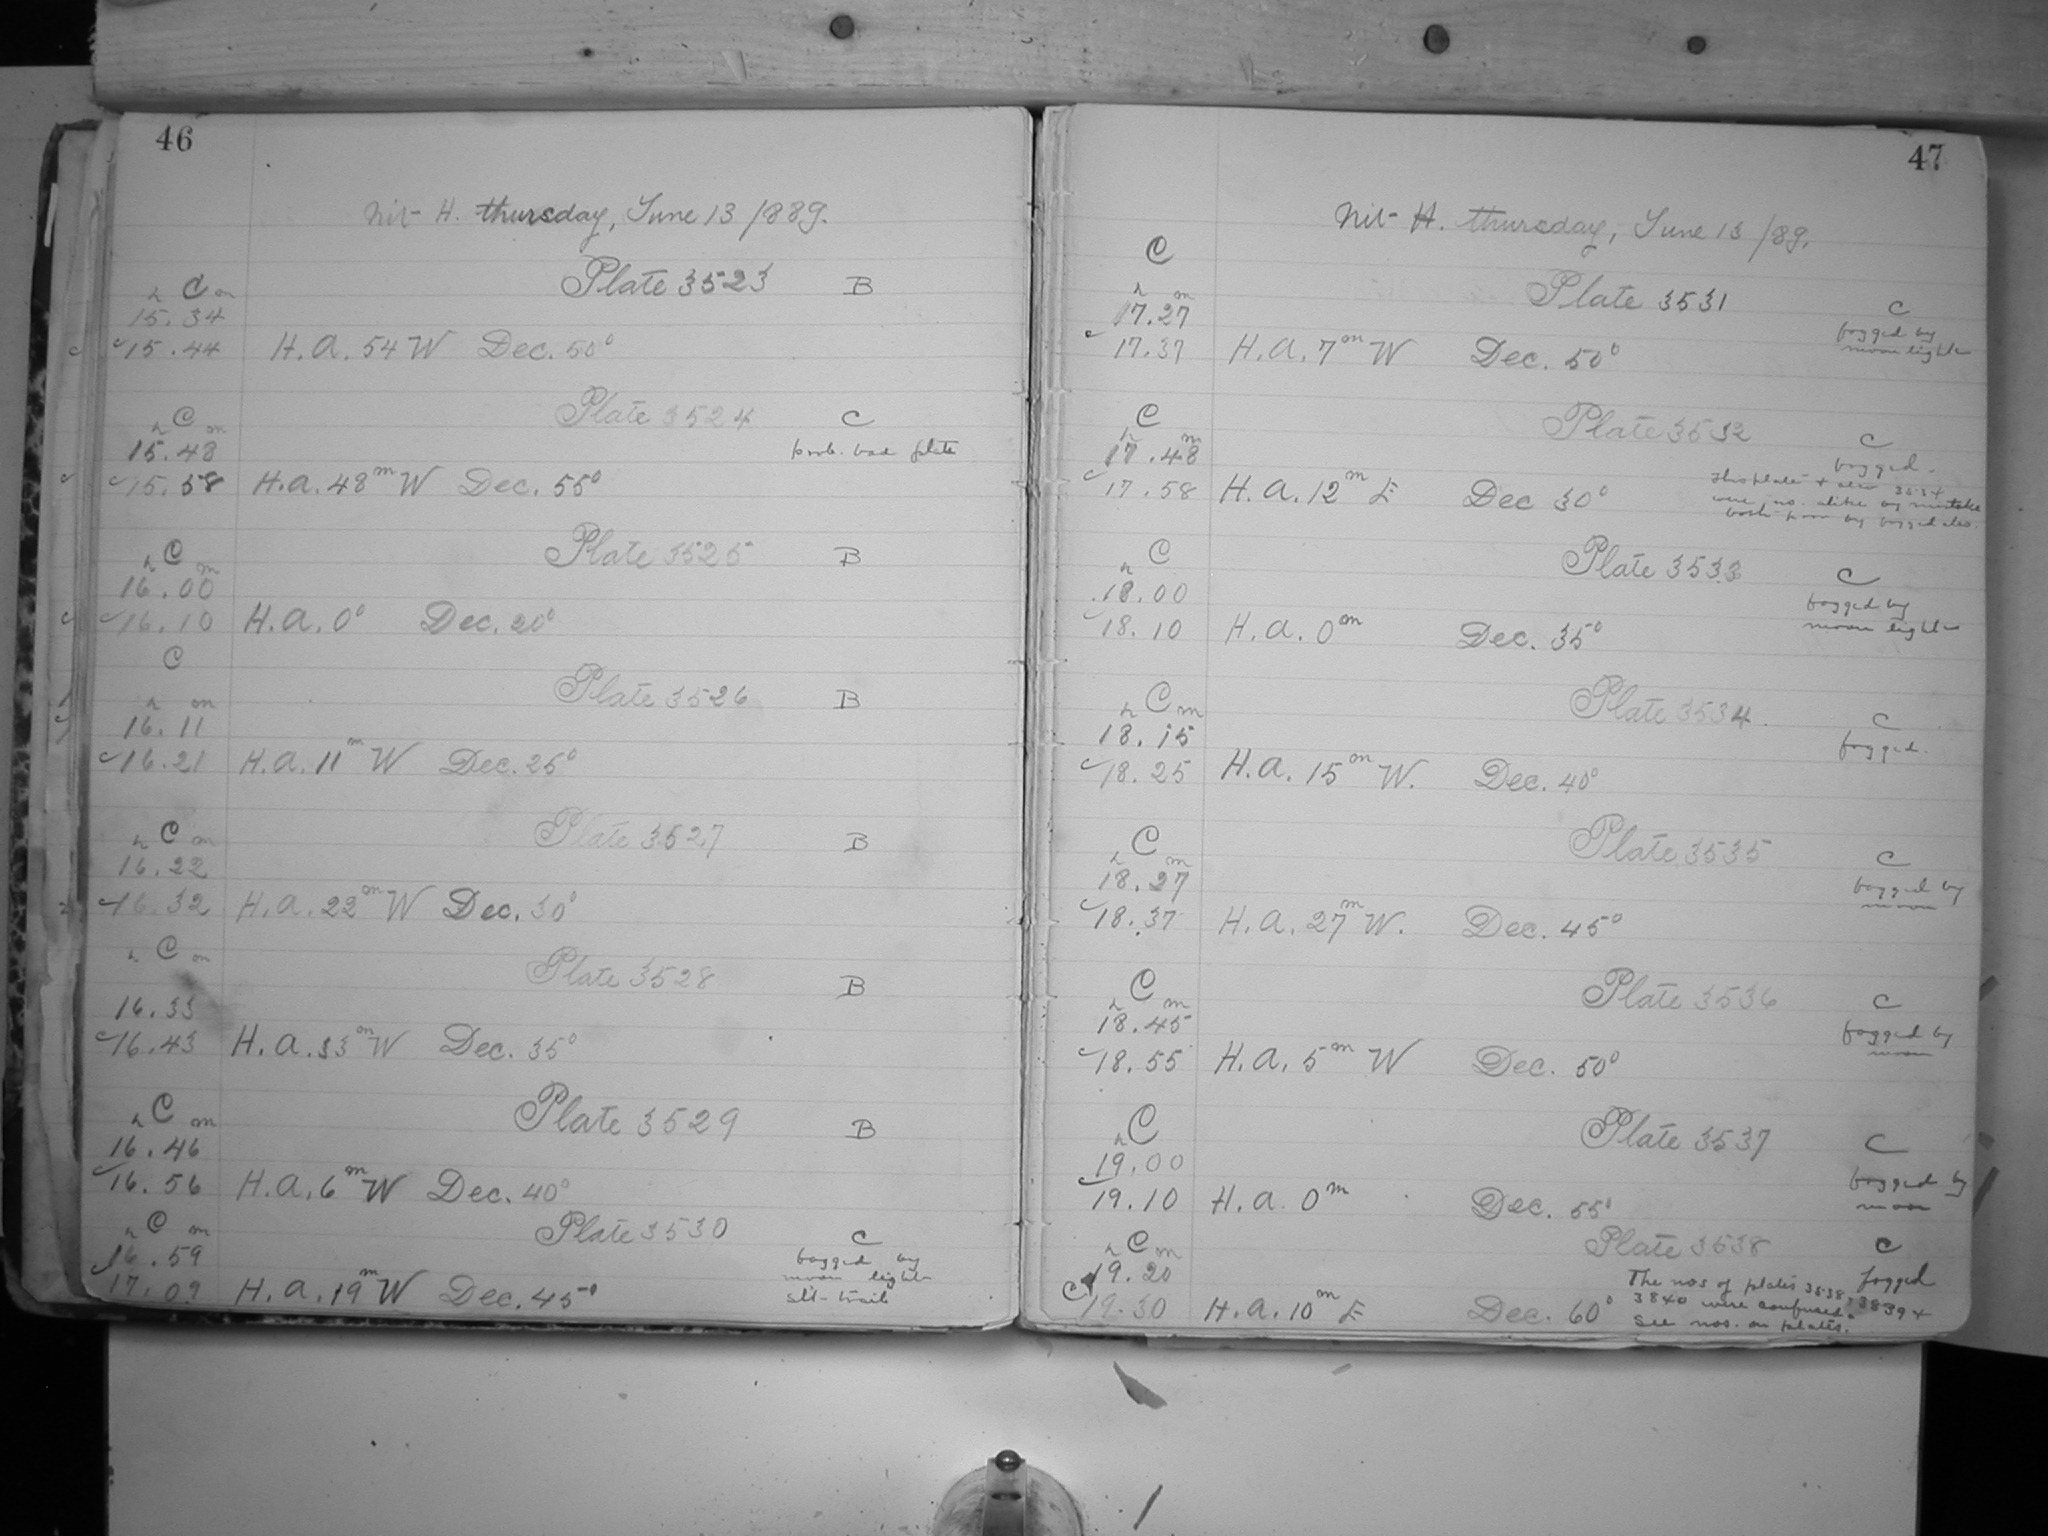 46
Nit H. Thursday, June 13/889.
C Plate 3523 B
h m
15.34
15.44 H.A. 54 W Dec. 50°
C Plate 3524 C
h m
15.48 prob. bad plate
15.58 H.A. 48m W Dec. 55°
C Plate 3525 B
h m
16.00
16.10 H.A. 0° Dec. 20°
C
Plate 3526 B
h m
16.11
16.21 H.A. 11m W Dec. 25°
C Plate 3527 B
h m
16.22
16.32 H.A. 22m W Dec. 30°
h C m
Plate 3528 B
16.33
16.43 H.A. 33m W Dec. 35°
h C m Plate 3529 B
16.46
16.56 H.A. 6m W Dec. 40°
h C m Plate 3530 C
16.59 fogged by
moon light
17.09 H.A. 19m W Dec. 45°
slt trail
47
Nit H. Thursday, June 13/89.
C
h m Plate 3531 C
17.27 fogged by
moon light
17.37 H.A. 7m W Dec. 50°
C Plate 3532 C
h m
17.48 fogged.
17.58 H.A. 12m E Dec 30° This plate + also 3534
were no. alike by mistake
both fogged also.
h C Plate 3533 C
18.00 fogged by
moon light
18.10 H.A. 0m Dec. 35°
h C m Plate 3534. C
18.15 fogged.
18.25 H.A. 15m W. Dec. 40°
C Plate 3535 C
h m
18.27 fogged by
moon
18.37 H.A. 27m W. Dec. 45°
h C m Plate 3536 C
18.45 fogged by
moon
18.55 H.A. 5m W Dec. 50°
h C Plate 3537 C
19.00
19.10 H.A. 0m Dec. 55° fogged by
moon
h C m Plate 3538 C
19.20 fogged
19.30 H.A. 10m E Dec. 60° The nos of plates 3538, 3839 +
3840 were confused.
See nos. on plates.